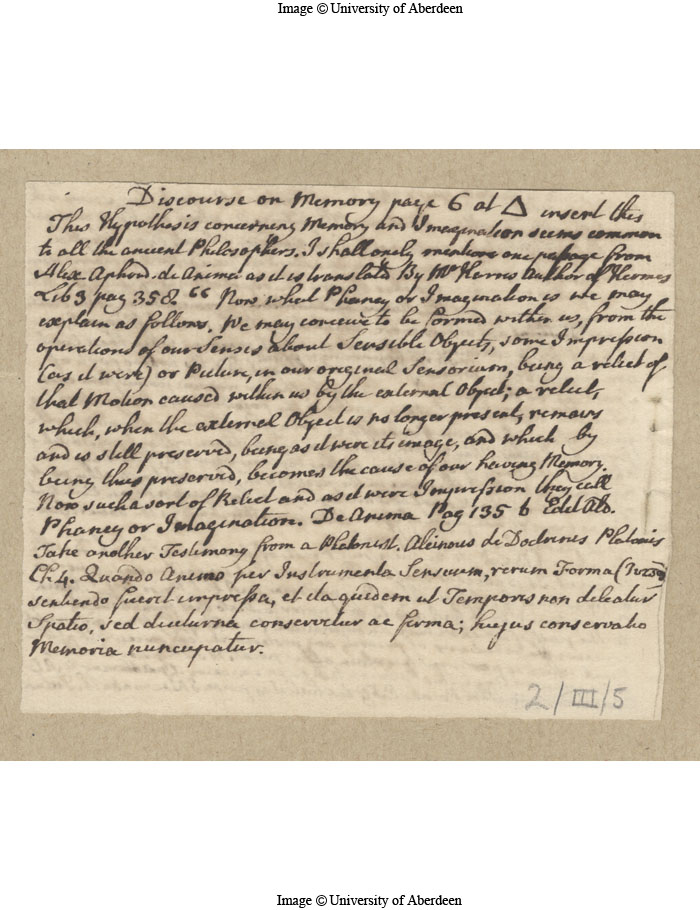 Image © University of Aberdeen
Discourse on Memory page 6 at Δ insert this
This Hypothesis concerning Memory and Imagination seems common
to all the ancient Philosophers. I shall only mention one passage from
Alex. Aphrod. de Anima as it is translated By Mr Harris Author of Hermes
Lib 3 pag 358. “ Now what Phancy or Imagination is we may
explain as follows. We may conceive to be formed within us, from the
operations of our Senses about Sensible Objects, some Impression
(as it were) or Picture, in our original Sensorium, being a relict of
that Motion caused within us by the external Object; a relict,
which, when the external Object is no longer present, remains
and is still preserved, being as it were its image, and which by
being thus preserved, becomes the cause of our having Memory.
Now such a sort of Relict and as it were Impression they call
Phancy or Imagination. De Anima Pag 135 b Edit Ald.
Take another Testimony from a Platonist. Alcinous de Doctrina Platonis
Ch 4. Quando Animo per Instrumenta Sensuum, rerum Forma
sentiendo fuerit impressa, et ita quidem ut Temporis non deleatur
Spatio, sed diuturna conservetur ac firma; hujus conservatio
Memoria nuncupatur.
2/III/5
Image © University of Aberdeen